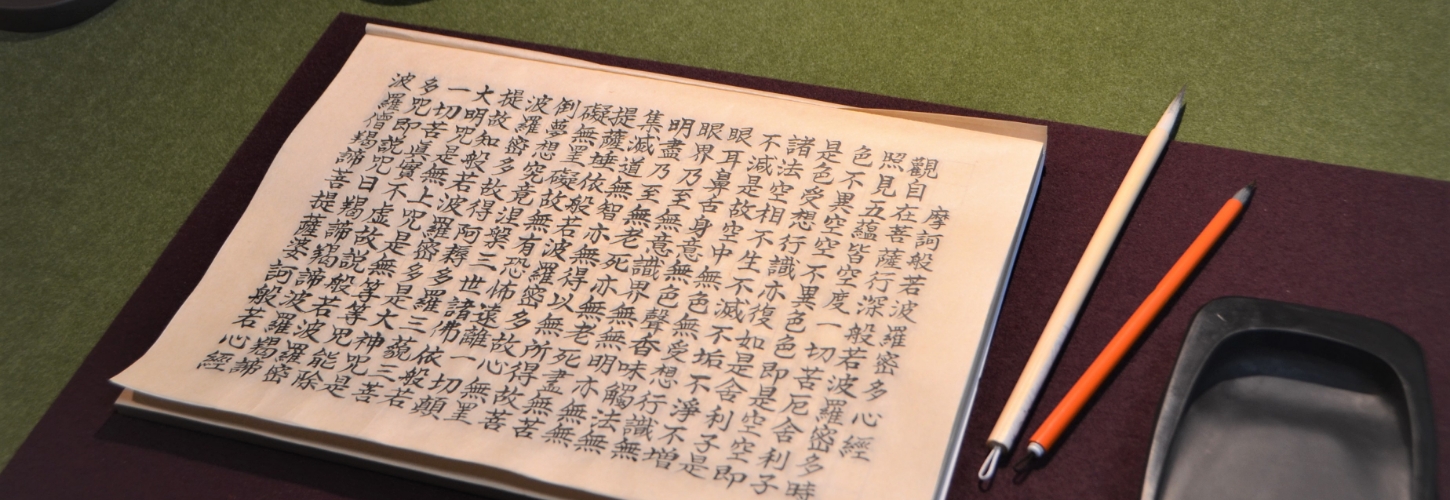 摩訶般若波羅密多心經
觀自在菩薩行深般若波羅密多時
照見五蘊皆空度一切苦厄舍利子
色不異空空不異色色即是空空即
是色受想行識亦復如是舍利子是
諸法空相不生不滅不垢不淨不増
不減是故空中無色無受想行識無
眼耳鼻舌身意無色聲香味觸法無
眼界乃至無意識界無無明亦無無
明盡乃至無老死亦無老死盡無苦
集滅道無智亦無得以無所得故菩
提薩埵依般若波羅密多故心無罣
礙無罣礙故無有恐怖遠離一切顛
倒夢想究竟涅槃三世諸佛依般若
波羅密多故得阿耨多羅三藐三菩
提故知般若波羅密多是大神咒是
大明咒是無上咒是無等等咒能除
一切苦眞實不虚故説般若波羅密
多咒即説咒曰羯諦羯諦波羅羯諦
波羅僧羯諦菩提薩婆訶般若心經